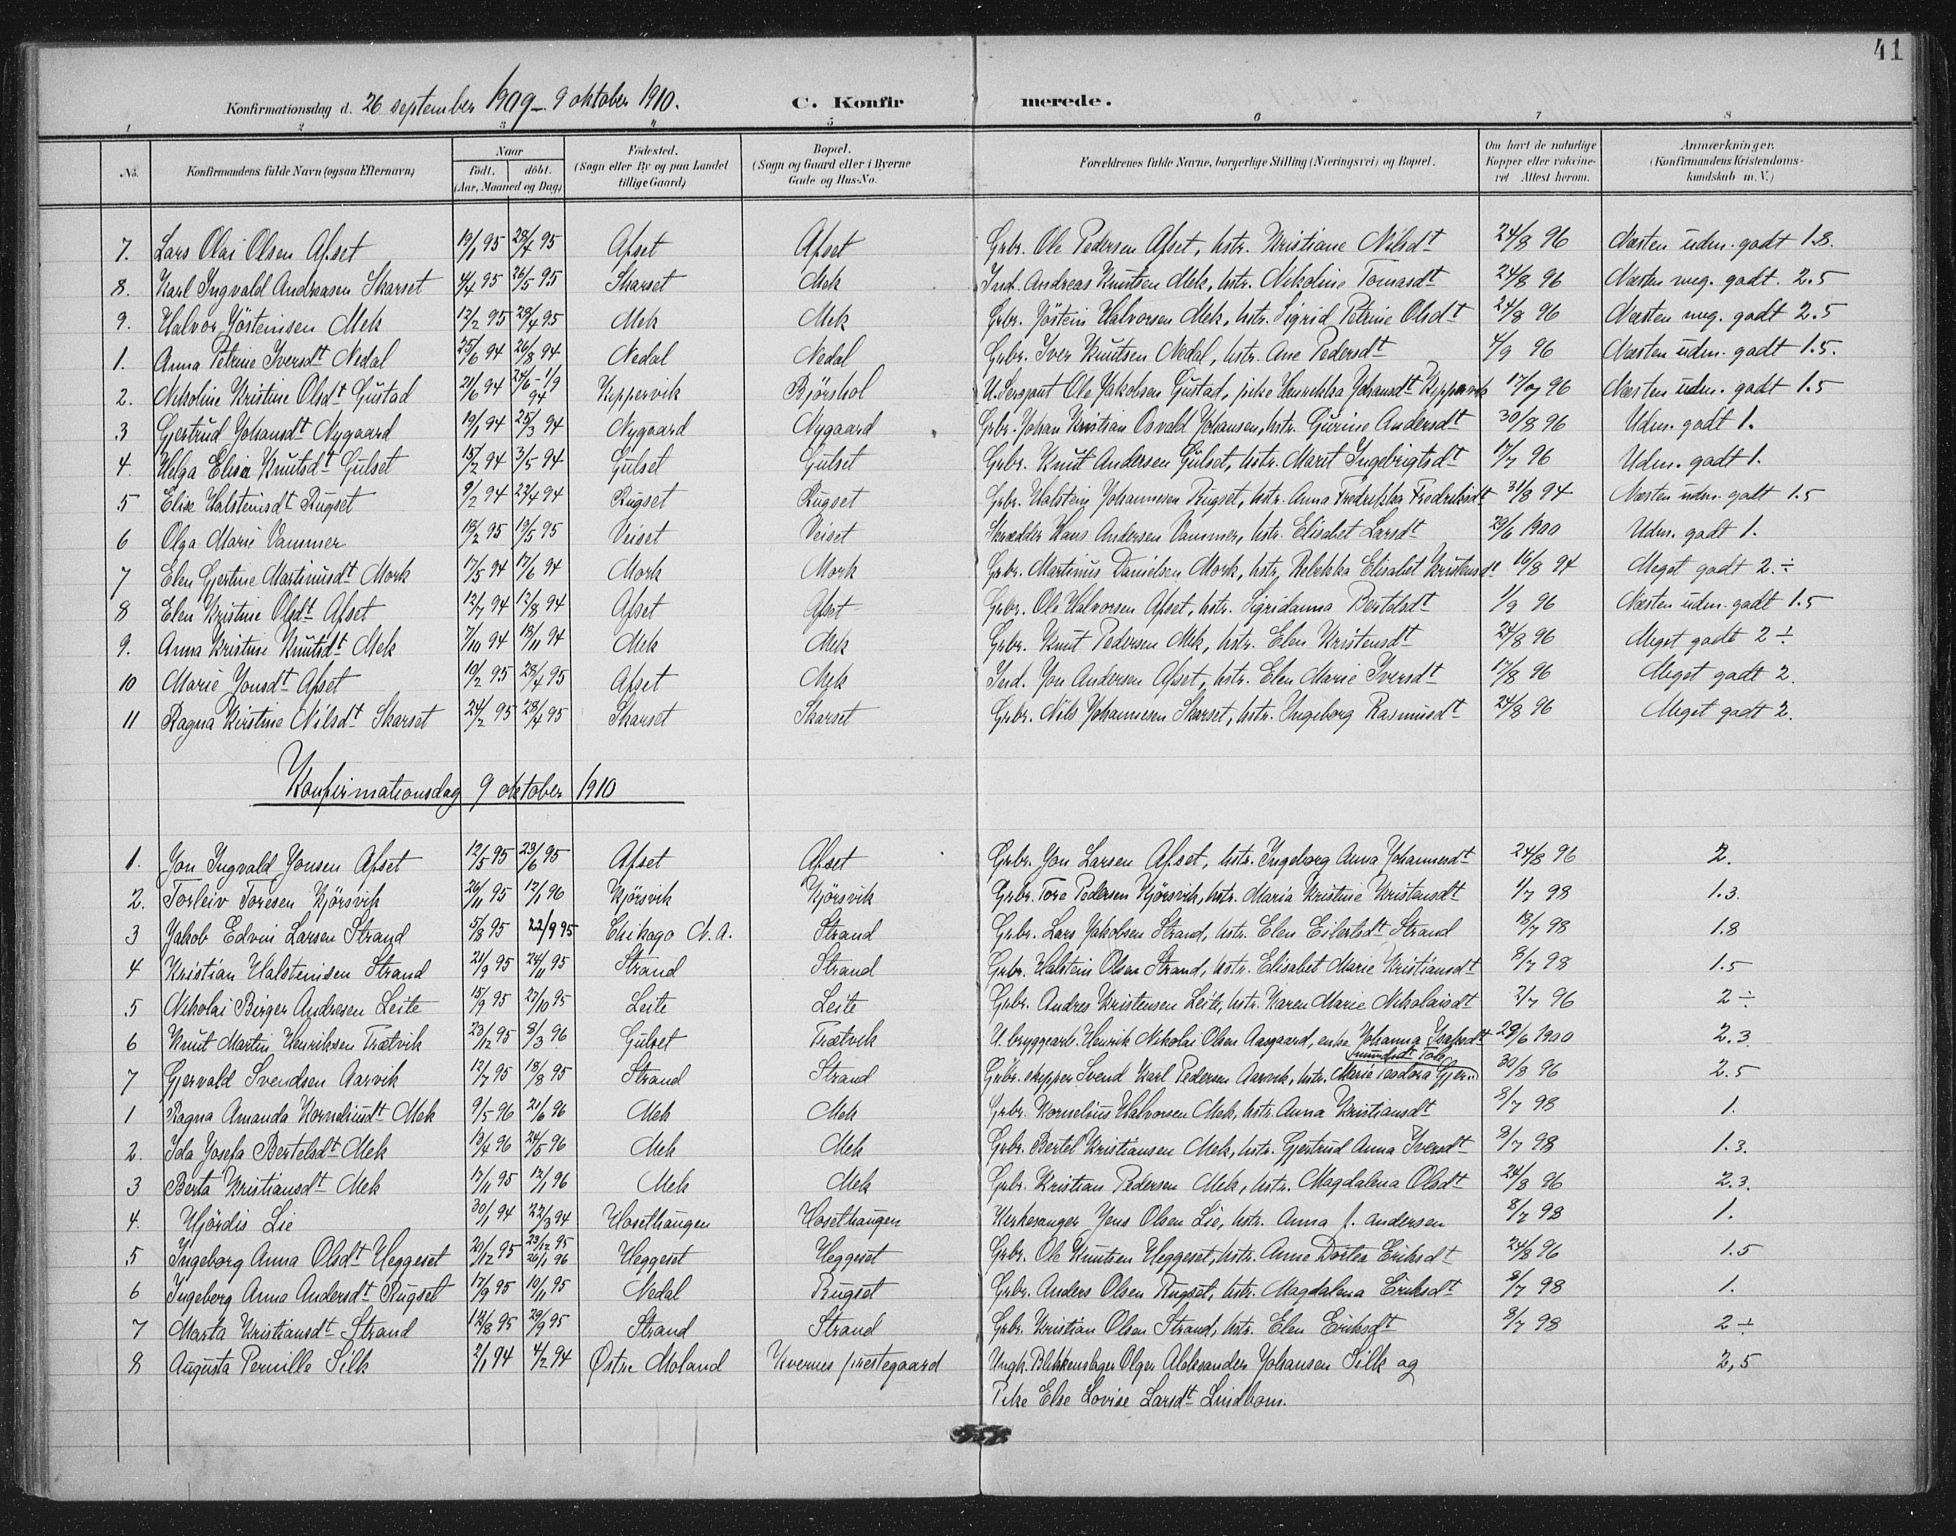 41
Konfirmationsdag d. 26 september 1909 - 9 oktober 1910. C. Konfirmerede.
1 2 3 4 5 6 7 8
No. Konfirmandens fulde Navn (ogsaa Efternavn) Naar født. døbt. (Aar, Maaned og Dag) Fødested. (Sogn eller By og paa Landet tillige Gaard) Bopæl. (Sogn og Gaard eller i Byerne Gade og Hus-No. Forældrenes fulde Navne, borgerlige Stilling (Næringsvei) og Bopæl. Om havt de naturlige Kopper eller vaccineret Attest herom. Anmærkninger. (Konfirmandens Kristendomskundskab m. V.)
7. Lars Olai Olsen Afset 19/1 95 28/4 95 Afset Afset Grbr. Ole Pedersen Afset, hstr. Kristiane Nilsdt 24/8 96 Næsten udm. godt 1.8.
8. Karl Ingvald Andreasen Skarset 4/4 95 26/5 95 Skarset Mek Ind. Andreas Knutsen Mek, hstr. Nikoline Tomasdt 24/8 96 Næsten meg. godt. 2.5
9. Halvor Jösteinsen Mek 12/2 95 28/4 95 Mek Mek Grbr. Jöstein Halvorsen Mek, hstr. Sigrid Petrine Olsdt 24/8 96 Næsten meg. godt 2.5
1. Anna Petrine Iversdt Nedal 25/6 94 26/8 94 Nedal Nedal Grbr. Iver Knutsen Nedal, hstr. Ane Pedersdt 4/9 96 Næsten udm. godt 1.5.
2. Nikoline Kristine Olsdt Gustad 21/6 94 24/6 - 1/9 94 Kippervik Bjørshol U. Sersjant Ole Jakobsen Gustad, pike Henrikka Johansdt Kippervik 17/7 96 Næsten udm. godt 1.5
3 Gjertrud Johansdt Nygaard 19/1 94 25/3 94 Nygaard Nygaard Grbr. Johan Kristian Osvald Johansen, hstr. Gurine Andersdt 30/8 96 Udm. godt 1.
4. Helga Elisa Knutsdt Gulset 15/2 94 3/5 94 Gulset Gulset Grbr. Knut Andersen Gulset, hstr. Marit Ingebrigtsdt 17/7 96 Udm. godt 1.
5 Elise Halsteinsdt Rugset 9/2 94 22/4 94 Rugset Rugset Grbr. Halstein Johannesen Rugset, hstr. Anna Fredrikka Fredriksdt 31/8 94 Næsten udm. godt 1.5
6 Olga Marie Vammer 18/2 95 19/5 95 Veiset Veiset Skrædder Hans Andersen Vammer, hstr. Elisabet Larsdt 29/6 1900 Udm. godt 1.
7 Elen Gjertine Martinusdt Mork 17/5 94 17/6 94 Mork Mork Grbr. Martinus Danielsen Mork, hstr. Rebekka Elisabet Kristensdt 16/8 94 Meget godt 2.÷
8 Elen Kristine Olsdt Afset 12/7 94 12/8 94 Afset Afset Grbr. Ole Halvorsen Afset, hstr. Sigridanna Bertelsdt 1/9 96 Næsten udm. godt 1.5
9. Anna Kristine Knutsdt Mek 7/10 94 18/11 94 Mek Mek Grbr. Knut Pedersen Mek, hstr. Elen Kristensdt 24/8 96 Meget godt 2 ÷
10 Marie Jonsdt Afset 10/2 95 28/4 95 Afset Mek Ind. Jon Andersen Afset, hstr. Elen Marie Iversdt 17/8 96 Meget godt 2.
11 Ragna Kirstine Nilsdt Skarset 24/2 95 28/4 95 Skarset Skarset Grbr. Nils Johannesen Skarset, hstr. Ingeborg Rasmusdt 24/8 96 Meget godt 2.
Konfirmationsdag 9 oktober 1910
1. Jon Ingvald Jonsen Afset 12/5 95 23/6 95 Afset Afset Grbr. Jon Larsen Afset, hstr. Ingeborg Anna Johannesdt 24/8 96 2.
2. Torleiv Toresen Kjörsvik 26/11 95 12/1 96 Kjörsvik Kjörsvik Grbr. Tore Pedersen Kjörsvik, hstr. Maria Kristine Kristensdt 1/7 98 1.3.
3 Jakob Edvin Larsen Strand 5/8 95 22/9 95 Chikago N.A. Strand Grbr. Lars Jakobsen Strand, hstr. Elen Eilertsdt Strand 18/7 98 1.8
4 Kristian Halsteinsen Strand 21/9 95 24/11 95 Strand Strand Grbr. Halstein Olsen Strand, hstr. Elisabet Marie Kristiansdt 8/7 98 1.5
5 Nikolai Birger Andresen Leite 15/9 95 27/10 95 Leite Leite Grbr. Andres Kristensen Leite, hstr. Karen Marie Nikolaisdt 2/7 96 2 ÷
6 Knut Martin Henriksen Trætvik 23/12 95 8/3 96 Gulset Trætvik U. bryggearb. Henrik Nikolai Olsen Aargaard, enke Johanna 29/6 1900 2.3.
7 Gjervald Svendsen Aarvik 12/7 95 18/8 95 Strand Strand Grbr. skipper Svend Karl Pedersen Aarvik, hstr. Marie 30/8 96 2.5
1 Ragna Amanda Korneliusdt Mek 9/5 96 21/6 96 Mek Mek Grbr. Kornelius Halvorsen Mek, hstr. Anna Kristiansdt 8/7 98 1.
2. Ida Josefa Bertelsdt Mek 13/4 96 24/5 96 Mek Mek Grbr. Bertel Kristiansen Mek, hstr. Gjertrud Anna Iversdt 8/7 98 1.3.
3 Berta Kristiansdt Mek 17/11 95 12/1 96 Mek Mek Grbr. Kristian Pedersen Mek, hstr. Magdalena Olsdt 24/8 96 2.3.
4. Hjördis Lie 30/1 94 22/3 94 Hosethaugen Hosethaugen Kirkesanger Jens Olsen Lie, hstr. Anna f. Andersen 8/7 98 1.
5 Ingeborg Anna Olsdt Heggeset 20/12 95 23/12 95 26/1 96 Heggeset Heggeset Grbr. Ole Knutsen Heggeset, hstr. Anne Dortea Eriksdt 24/8 96 1.5
6 Ingeborg Anna Andersdt Rugset 17/9 95 10/11 95 Nedal Rugset Grbr. Anders Olsen Rugset, hstr. Magdalena Eriksdt 8/7 98 1.
7 Marta Kristiansdt Strand 12/8 95 29/9 95 Strand Strand Grbr. Kristian Olsen Strand, hstr. Elen Eriksdt 8/7 98 2 ÷
8 Augusta Pernille Silk 2/1 94 4/2 94 Østre Moland Kvernes prestegaard Ungk. Blikkenslager Olger Aleksander Johansen Silk og 2,5
Pike Else Lovise Larsdt Lindbom.